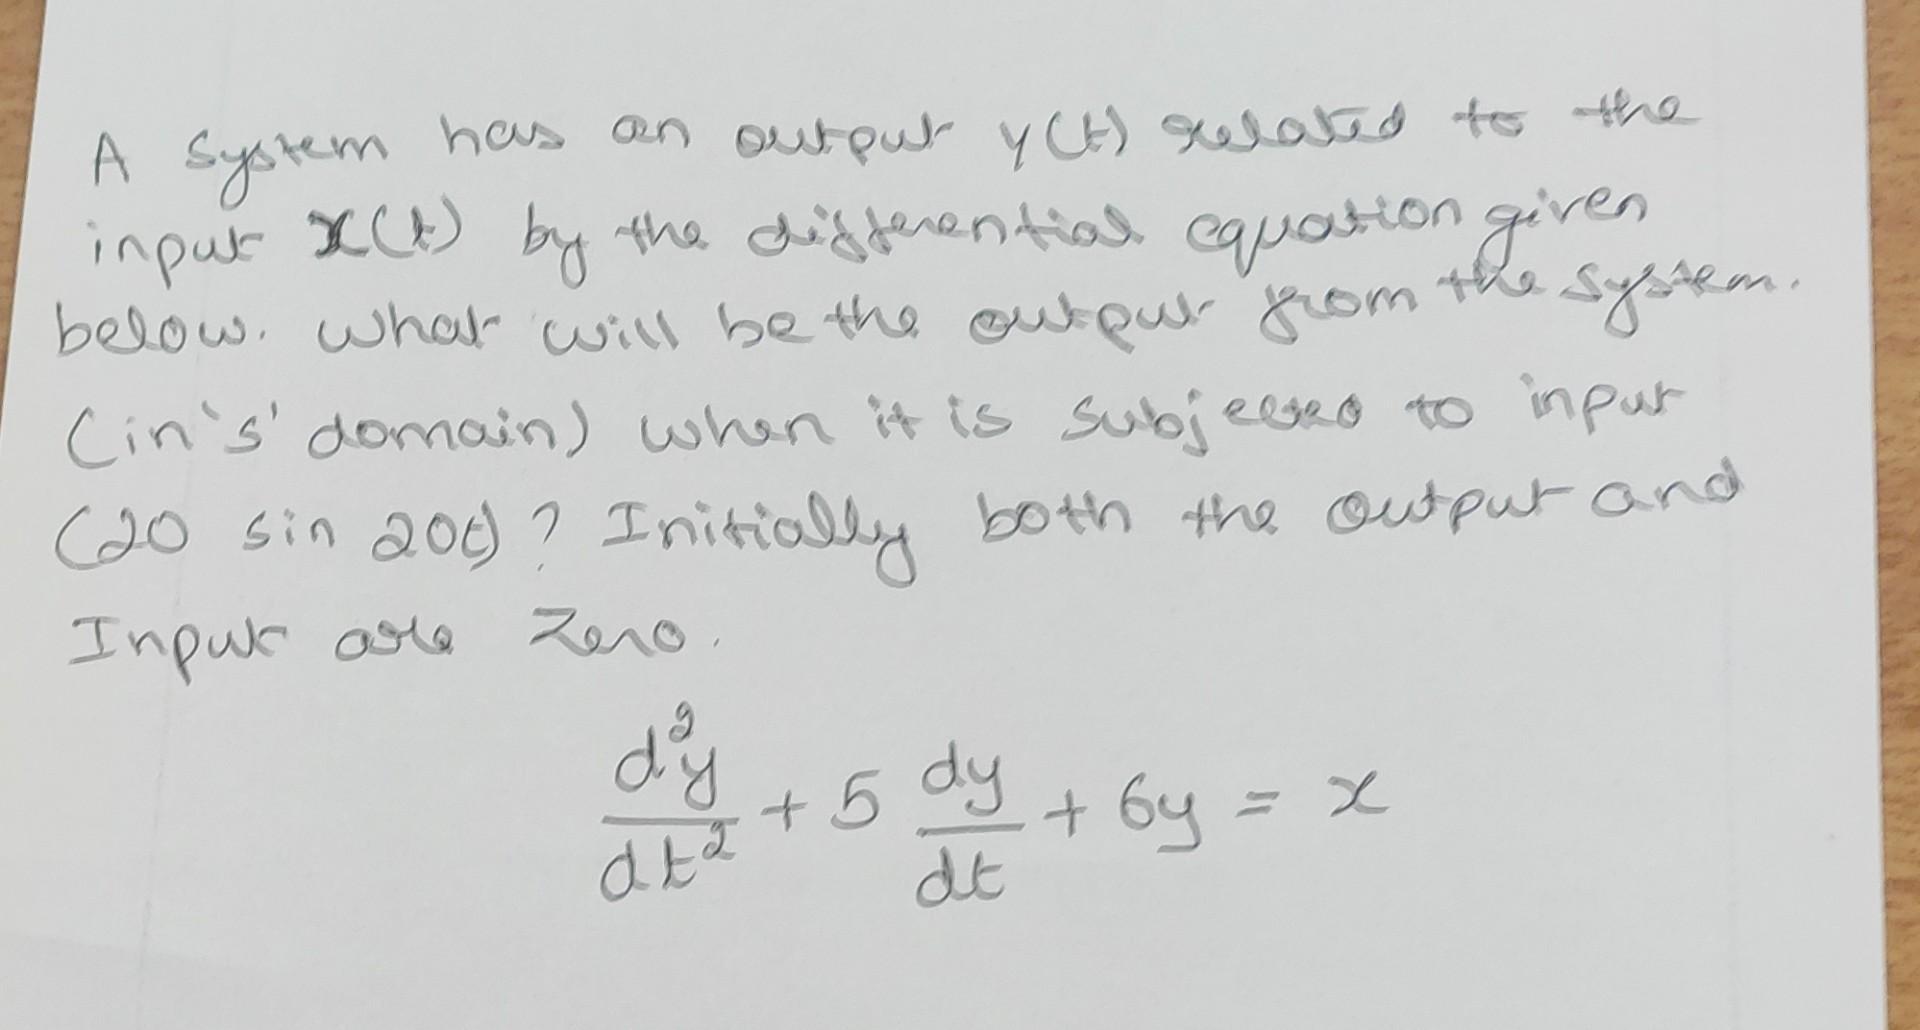 A system has an output y(t) related to the
input x(t) by the differential equation given
below. What will be the output from the system.
(in 's' domain) when it is subjected to input
(20 sin 20t)? Initially both the output and
Input are Zero.
d²y/dt² + 5 dy/dt + 6y = x